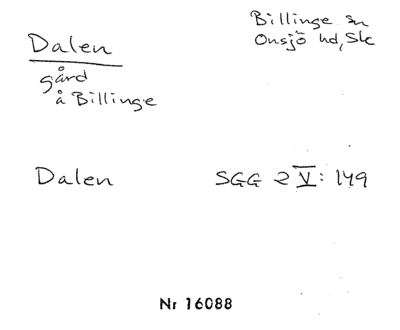 Dalen
gård
å Billinge
Billinge sn
Onsjö hd, Sk
Dalen
SGG 2 V: 149
Nr 16088